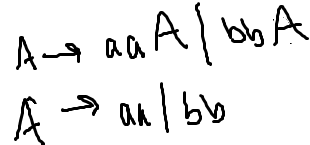 A → aaA | bbA
A → aa | bb